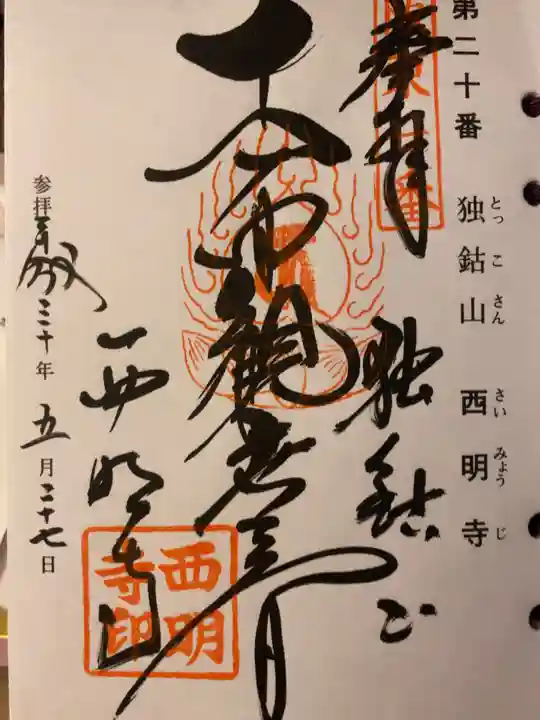 第二十番 独鈷山 西明寺
とっこさん さいみょうじ
奉拝 独鈷山
十一面観世音
西明寺
参拝 平成三十年五月二十七日
西明寺印